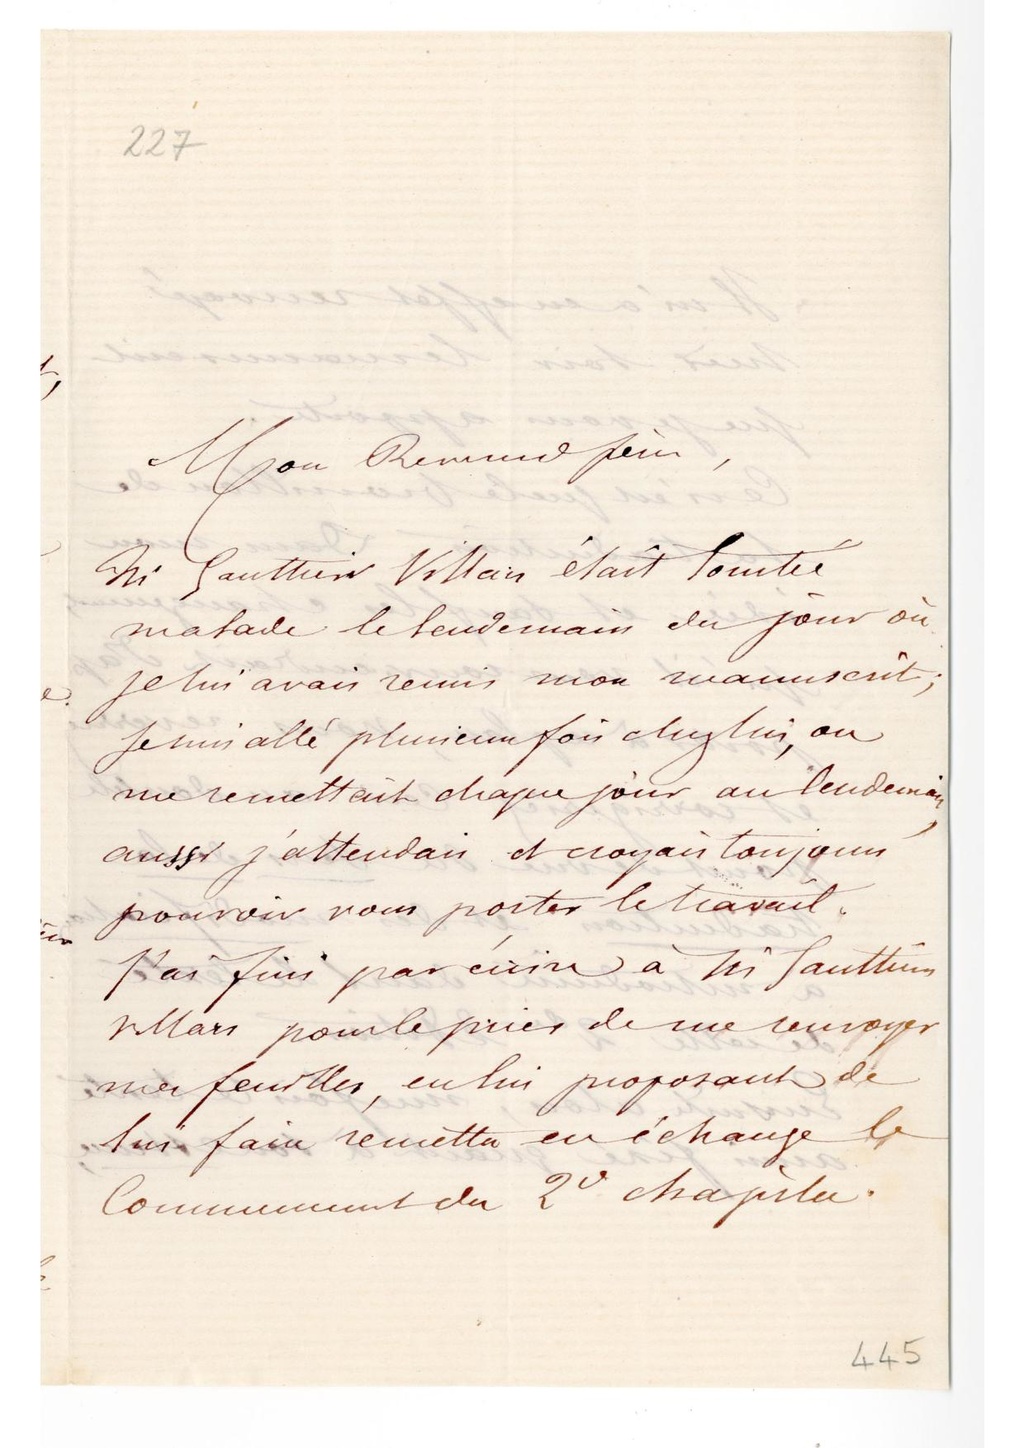 227
Mon Révérend père,
Mr Gauthier Villars était tombé
malade le lendemain du jour où
je lui avais remis mon manuscrit;
je suis allé plusieurs fois chez lui, on
me remettait chaque jour au lendemain,
aussi j'attendais et croyais toujours
pouvoir vous porter le travail.
J'ai fini par écrire à Mr Gauthier
Villars pour le prier de me renvoyer
mes feuilles, en lui proposant de
lui faire remettre en échange le
Commencement du 2e chapitre.
445